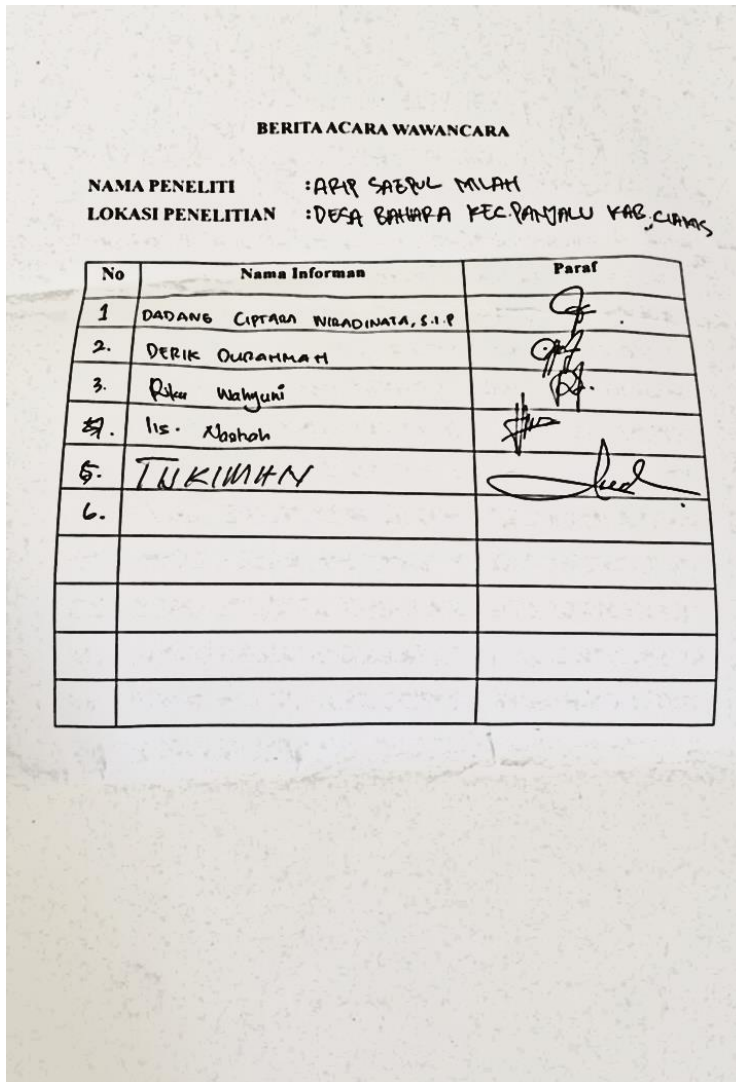 BERITA ACARA WAWANCARA
NAMA PENELITI : ARIP SAEPUL MILAH
LOKASI PENELITIAN : DESA BAHARA KEC. PANJALU KAB. CIAMIS
No Nama Informan Paraf
1 DADANG CIPTARA WIRADINATA, S.I.P
2. DERIK DURAHMAH
3. Wahyuni
4. Iis.
5. TUKIMAN
6.